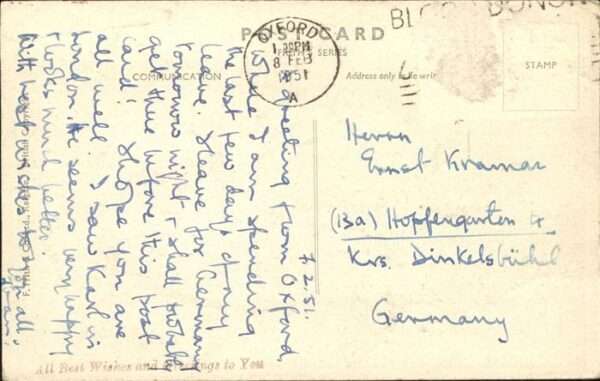 POST CARD
COMMUNICATION
Address only to be writ
STAMP
SERIES
OXFORD
1 30PM
8 FEB
1951
A
7.2.51.
A greeting from Oxford,
where I am spending
the last few days of my
leave. I leave for Germany
tomorrow night & shall probably
get there before this post
card! I hope you are
all well. I saw Karl in
London. He seems very happy
& looks much better.
With best wishes to you all,
Herrn
Ernst Kramar
(13a) Hopfengarten 4
Krs. Dinkelsbühl
Germany
All Best Wishes and Greetings to You